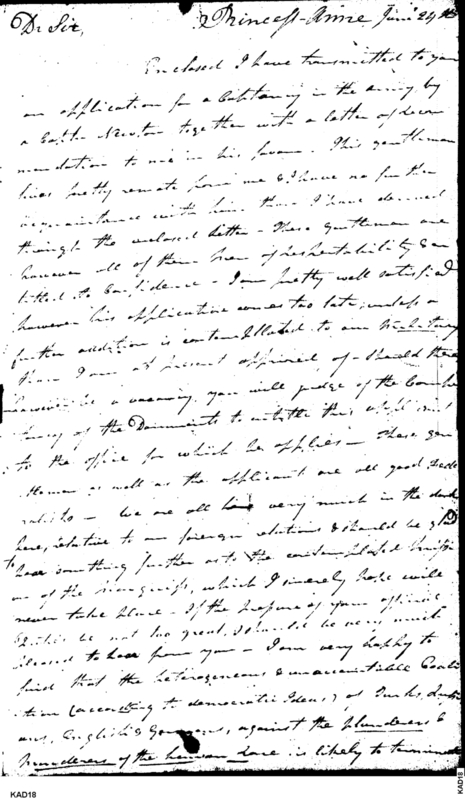 Dr Sir, Princess-Anne June 24th
Enclosed I have transmitted to you
an application for a Captaincy in the army by
a Captn Newton together with a letter of recom
mendation to me in his favour. This gentleman
lives pretty remote from me & I have no further
acquaintance with him than I have derived
through the enclosed letter - These gentlemen are
however all of them Men of respectability & en
titled to confidence - I am pretty well satisfied
however his application comes too late, unless a
further addition is contemplated to our Military
than I am at present apprised of - should there
however be a vacancy you will judge of the Compe
tency of the Documents to entitle this applicant
to the office for which he applies - These gen
tlemen as well as the applicant are all good Fede
ralists - We are all here very much in the dark
here, relative to our foreign relations & should be glad
to hear something further as to the contemplated Mission
which I sincerely hope will
never take place - If the pressure of your official
duties be not too great, I should be very much
pleased to hear from you - I am very happy to
find that the heterogeneous & unaccountable Coali
tion (according to democratic Ideas) of Turks, Russi
ans, English & Germans, against the plunderers &
Murderers of the human Race is likely to terminate
KAD18
KAD18